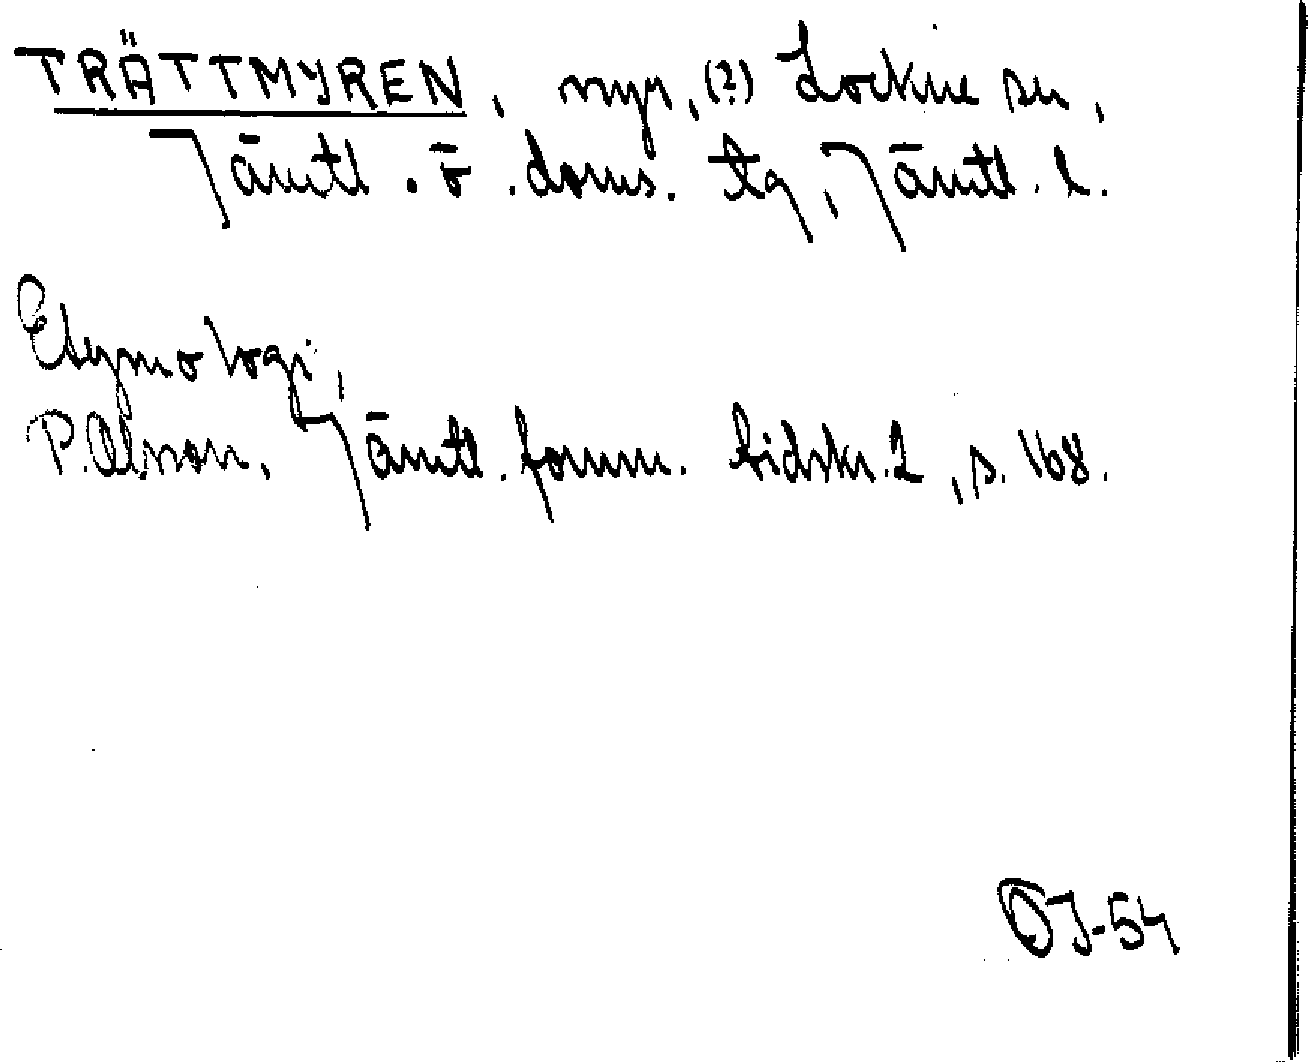 TRÄTTMYREN, myr, (?) Lockne sn,
Jämtl. ö. doms. tg, Jämtl. l.
Etymologi,
P. Olsson, Jämtl. fornm. tidskr. 2, s. 168.
OJ-54